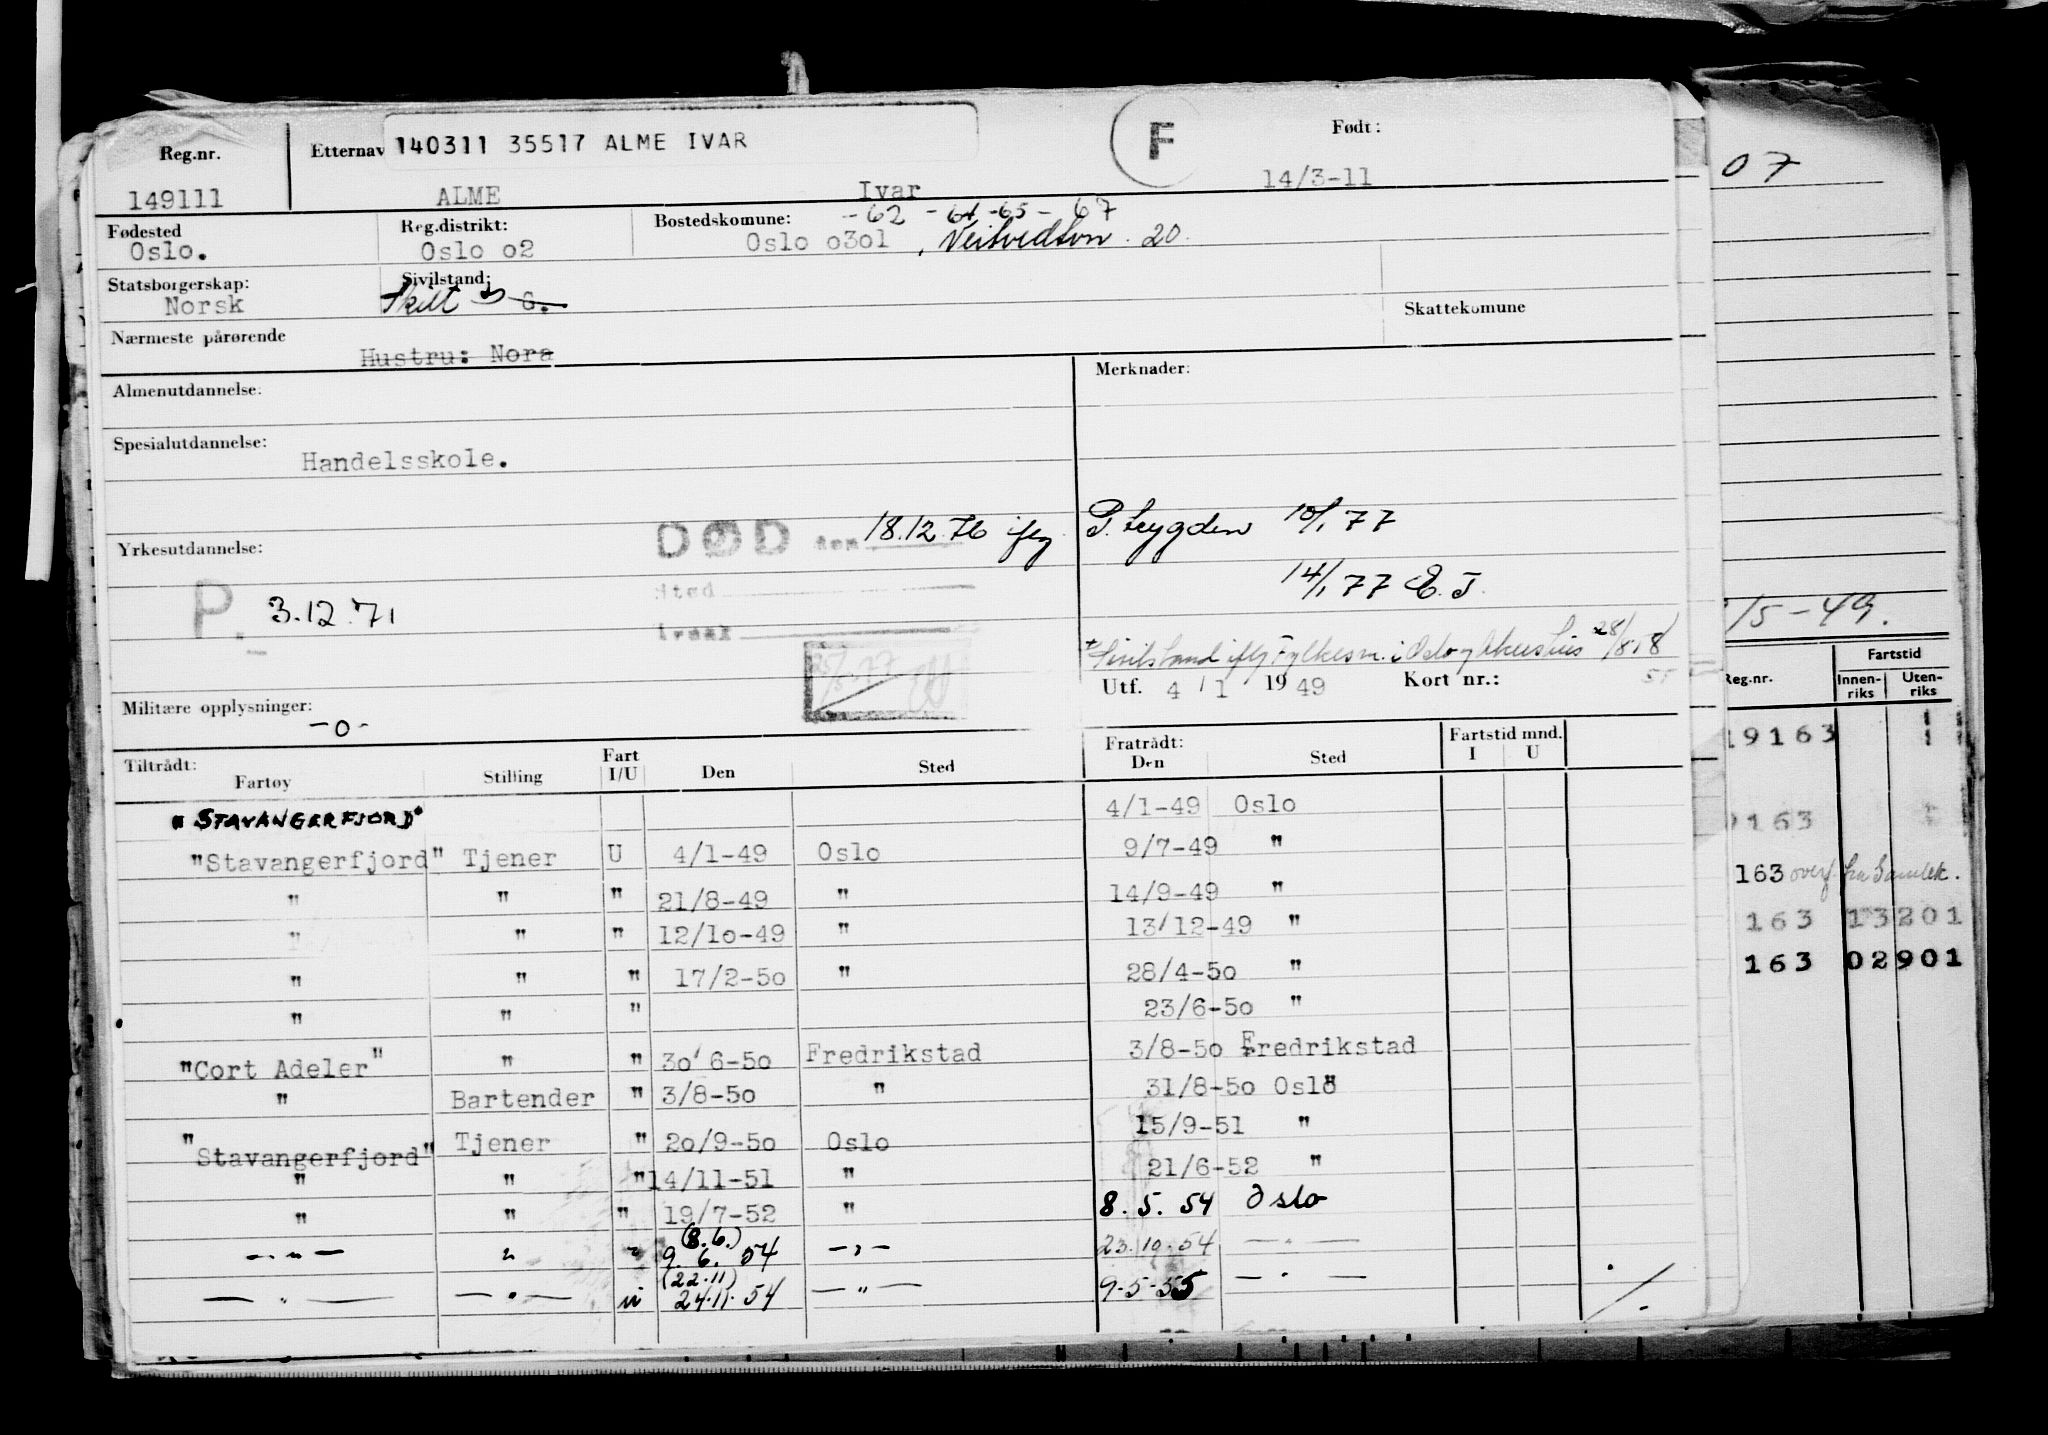 140311 35517 ALME IVAR
F
Født:
Reg.nr. Etternav
149111 ALME Ivar 14/3-11
-62 -64 -65 - 67
Fødested Reg.distrikt: Bostedskomune:
Oslo. Oslo o2 Oslo o3o1, Veitvedtvn. 20.
Statsborgerskap: Sivilstand:
Norsk Skilt G.
Skattekomune
Nærmeste pårørende
Hustru: Nora
Almenutdannelse: Merknader:
Spesialutdannelse:
Handelsskole.
DØD den 18.12.76 iflg. P. trygden 10/1 77
Yrkesutdannelse:
Sted 14/1 77 E. J.
P. 3.12.71
årsak
Sivilstand iflg Fylkesm. i Oslo
Utf. 4/1 1949 Kort nr.:
Militære opplysninger:
-o-
Tiltrådt: Fart Fratrådt: Fartstid mnd.
Fartøy Stilling I/U Den Sted Den Sted I U
"STAVANGERFJORD" 4/1-49 Oslo
"Stavangerfjord" Tjener U 4/1-49 Oslo 9/7-49 "
" " " 21/8-49 " 14/9-49 "
" " " 12/1o-49 " 13/12-49 "
" " " 17/2-5o " 28/4-5o "
" " " 23/6-5o "
"Cort Adeler" " " 3o/6-5o Fredrikstad 3/8-5o Fredrikstad
" Bartender " 3/8-5o " 31/8-5o Oslo
"Stavangerfjord" Tjener " 2o/9-5o Oslo 15/9-51 "
" " " 14/11-51 " 21/6-52 "
" " " 19/7-52 " 8.5.54 Oslo
(8.6.)
-"- " " 9.6.54 -"- 23.10.54 -"-
(22.11)
-"- -"- " 24.11.54 -"- 9-5-55 -"-
07
/5-49.
Fartstid
Reg.nr. Innen-riks Uten-riks
19163
9163
163 overf. fra Samlek.
163 13201
163 02901